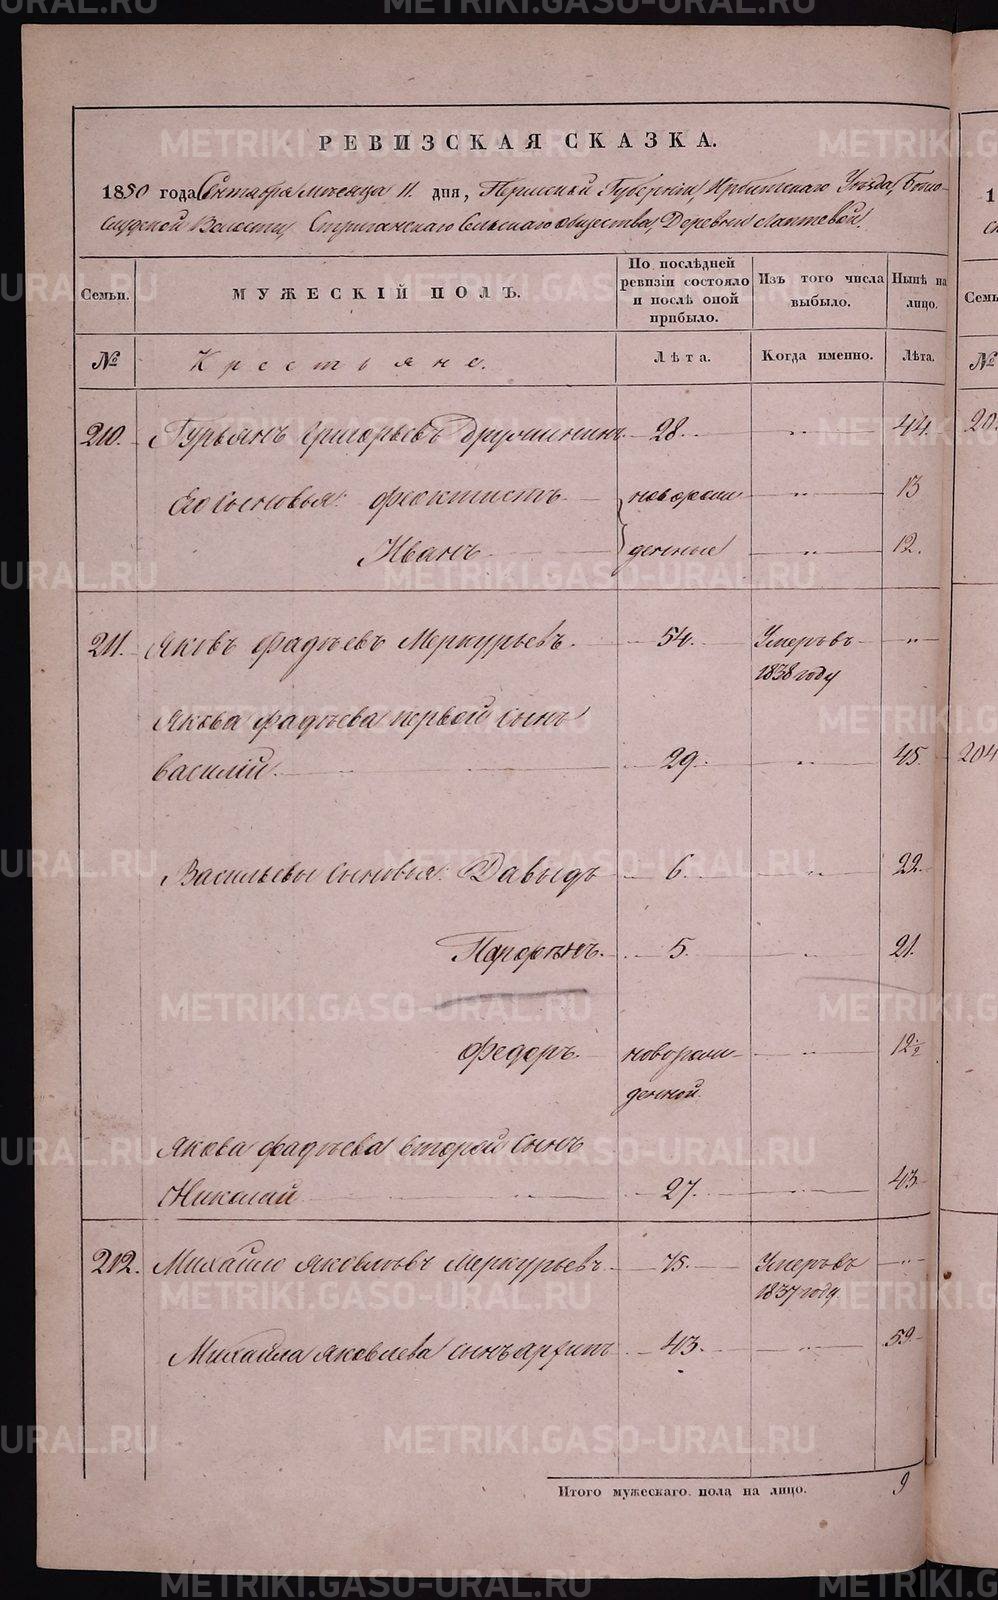 РЕВИЗСКАЯ СКАЗКА.
1850 года Октября месяца 11. дня, Пермской Губерніи, Ирбитскаго Уѣзда, Бело-
слудской Волости, Стриганскаго Сельскаго общества, Деревни Лаптевой.
Семьи. МУЖЕСКІЙ ПОЛЪ. По послѣдней ревизіи состояло и послѣ оной прибыло. Изъ того числа выбыло. Нынѣ на лицо.
№ Крестьяне. Лѣта. Когда именно. Лѣта.
210. Гурьянъ Григорьевъ Дружининъ 28. " 44.
Его сыновья: Феоктистъ новорож- " 13
Иванъ денные " 12.
211. Яковъ Фадѣевъ Меркурьевъ. 54. Умеръ въ "
1838 году
Якова Фадѣева первой сынъ
Василій. 29. " 45.
Васильевы сыновья: Давыдъ 6. " 22.
Парфенъ. 5. " 21.
Федоръ. новорож- " 12½
денной.
Якова Фадѣева второй сынъ
Николай 27. " 43.
212. Михайло Яковлевъ Меркурьевъ. 75. Умеръ въ "
1837 году.
Михайла Яковлева сынъ Архипъ 43. " 59.
Итого мужескаго пола на лицо. 9
1
Семь
№
20.
204
METRIKI.GASO-URAL.RU